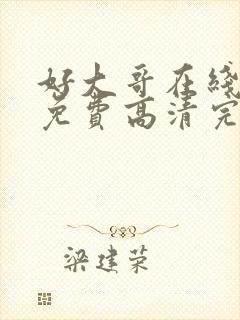 好大哥在綫
免費高清完
梁建荣